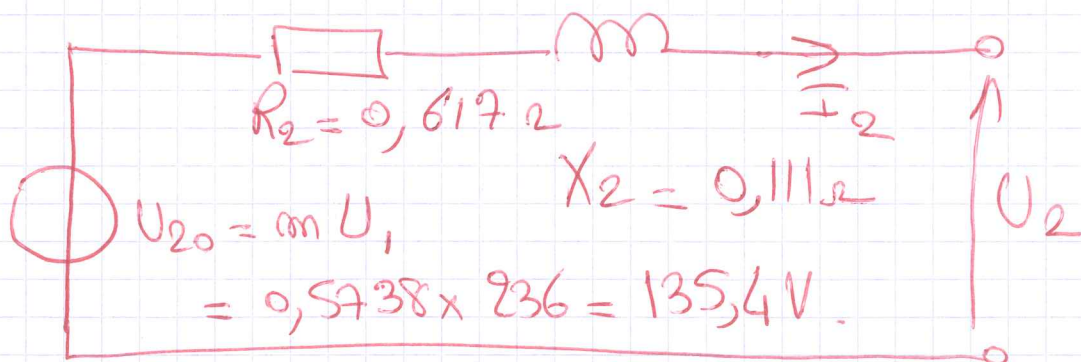 R₂ = 0,617 Ω
I₂
X₂ = 0,111 Ω
U₂
U₂₀ = m U₁
= 0,5738 x 236 = 135,4 V.